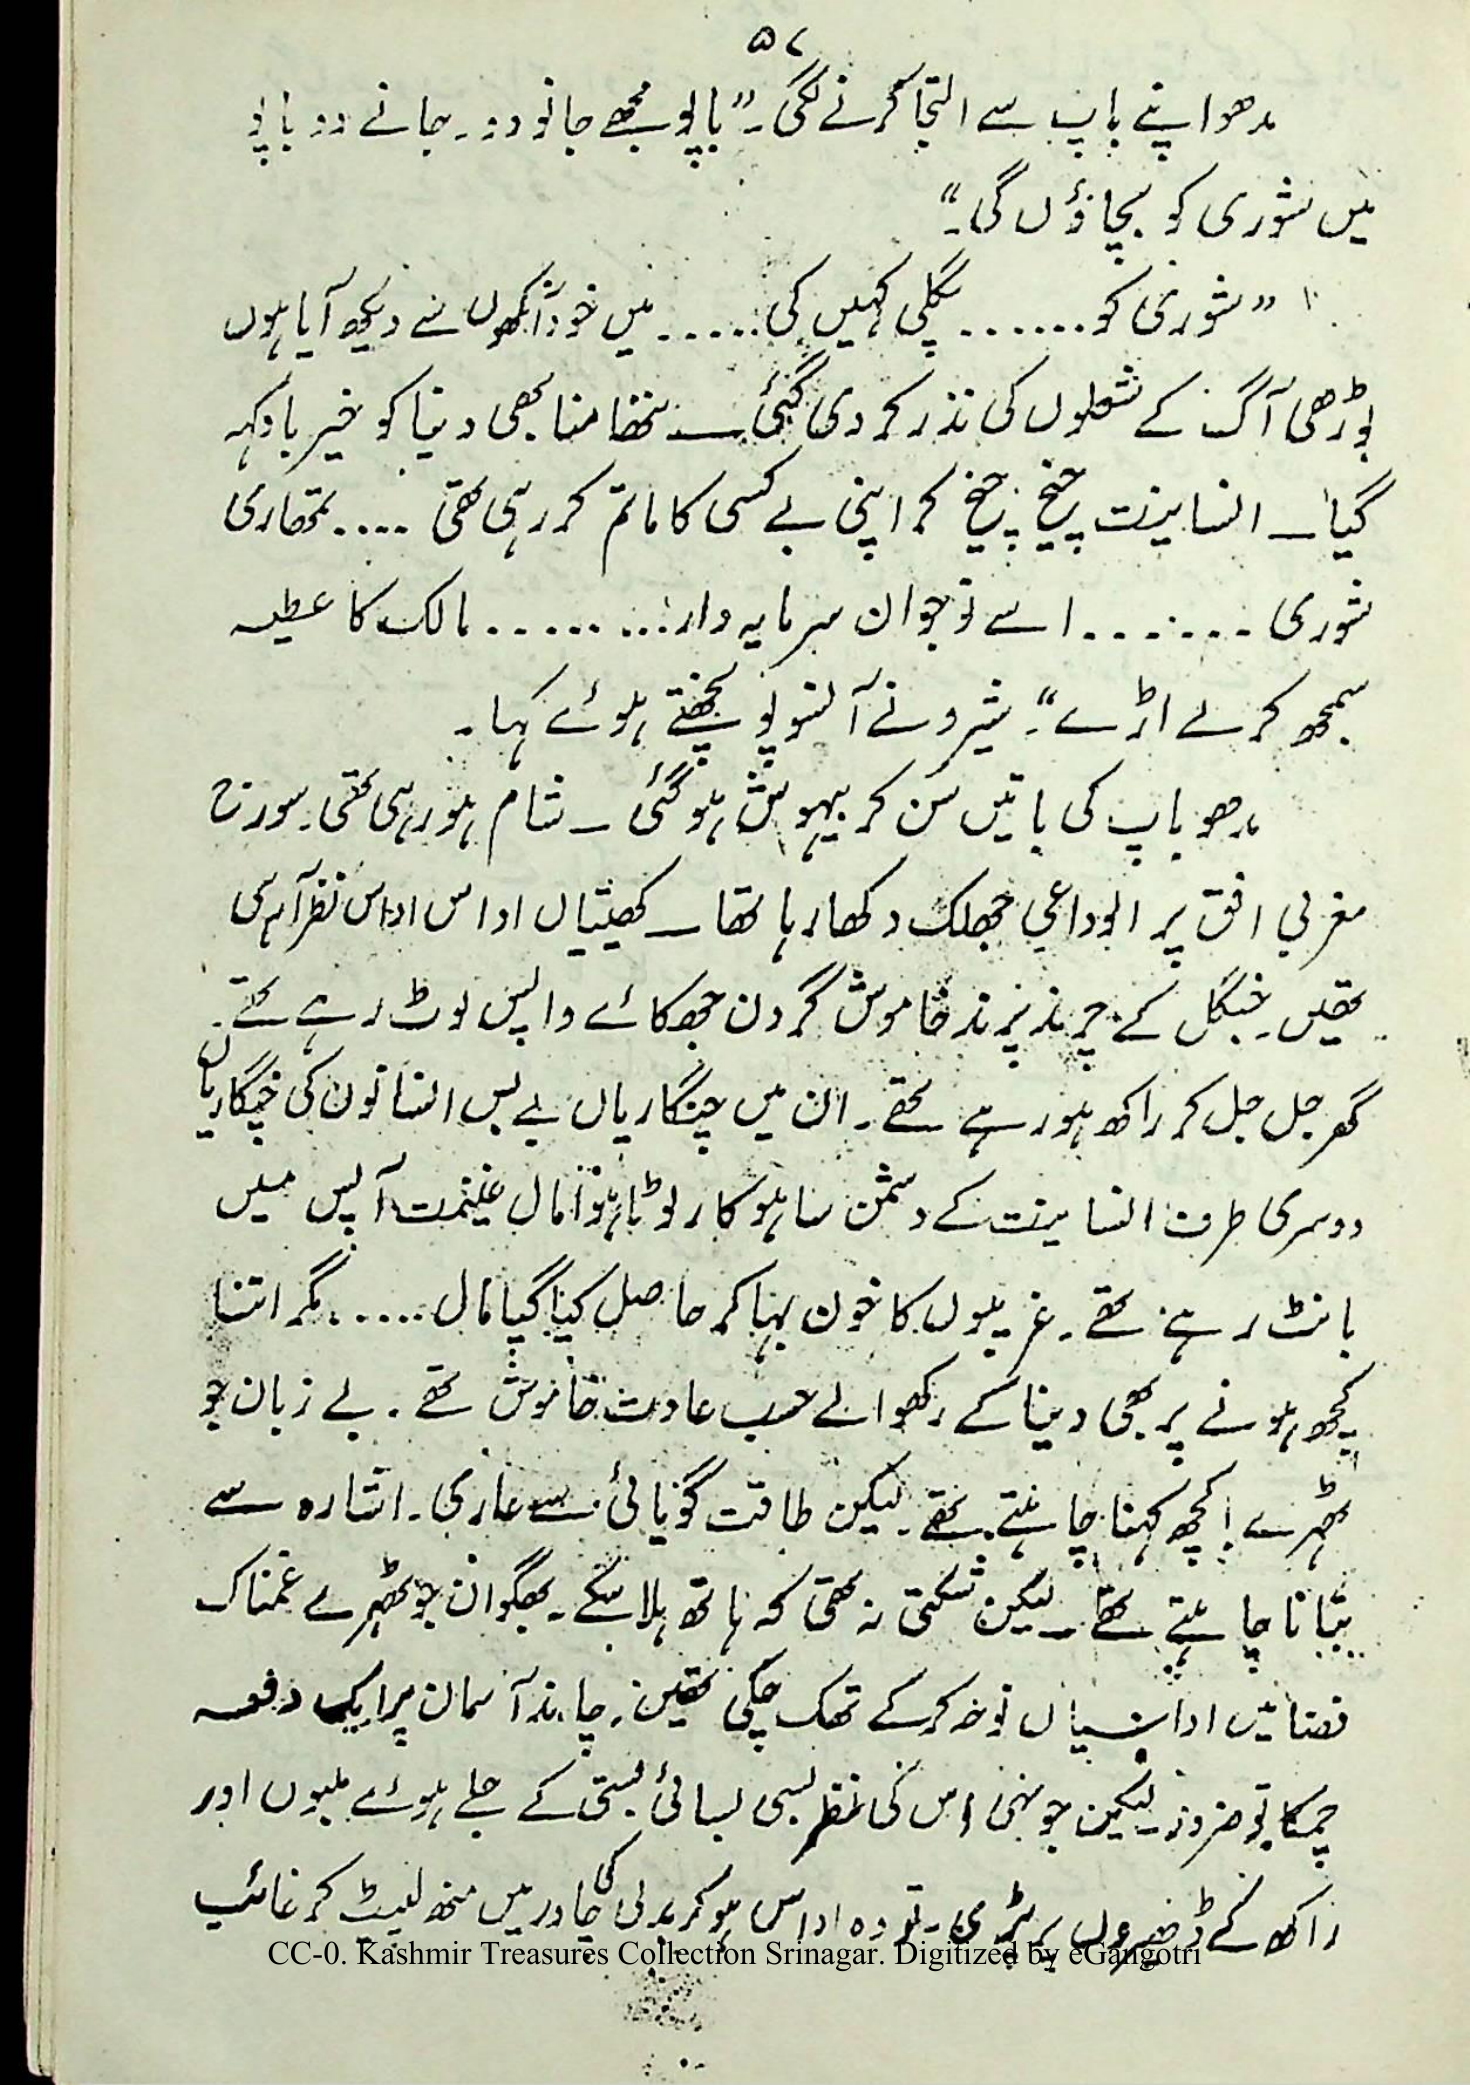 ۵۷
مدھو اپنے باپ سے التجا کرنے لگی۔ ”باپو مجھے جانو دو۔ جانے دو باپو
میں شوری کو بچاؤں گی۔“
”شوری کو....... پگلی کہیں کی...... میں خود آنکھوں سے دیکھ آیا ہوں
بوڑھی آگ کے شعلوں کی نذر کر دی گئی ــ ننھا منا بھی دنیا کو خیر باد کہہ
گیا ــ انسانیت چیخ چیخ کر اپنی بے کسی کا ماتم کر رہی تھی .... تمھاری
شوری ....... اسے نوجوان سرمایہ دار ........ مالک کا عطیہ
سمجھ کر لے اڑے“۔ شیرو نے آنسو پونچھتے ہوئے کہا۔
مدھو باپ کی باتیں سن کر بیہوش ہو گئی ــ شام ہو رہی تھی۔ سورج
مغربی افق پر الوداعی جھلک دکھا رہا تھا ــ کھیتیاں اداس اداس نظر آ رہی
تھیں۔ جنگل کے چرند پرند خاموش گردن جھکائے واپس لوٹ رہے تھے۔
گھر جل جل کر راکھ ہو رہے تھے۔ ان میں چنگاریاں بے بس انسانوں کی چنگاریاں
دوسری طرف انسانیت کے دشمن ساہوکار لوٹا ہوا مال غنیمت آپس میں
بانٹ رہے تھے۔ غریبوں کا خون بہا کر حاصل کیا گیا مال ...... مگر اتنا
کچھ ہونے پر بھی دنیا کے رکھوالے حسب عادت خاموش تھے۔ بے زبان جو
ٹھہرے! کچھ کہنا چاہتے تھے۔ لیکن طاقت گویائی سے عاری۔ اشارہ سے
بتانا چاہتے تھے ــ لیکن شکتی نہ تھی کہ ہاتھ ہلا سکے۔ بھگوان جو ٹھہرے غمناک
فضائیں اداسیاں نوحہ کر کے تھک چکی تھیں۔ چاند آسمان پر ایک دفعہ
چمکا تو ضرور۔ لیکن جونہی اس کی نظر بسی بسائی بستی کے جلے ہوئے ملبوں اور
راکھ کے ڈھیروں پر پڑی۔ تو وہ اداس ہو کر بدلی کی چادر میں منھ لپیٹ کر غائب
CC-0. Kashmir Treasures Collection Srinagar. Digitized by eGangotri